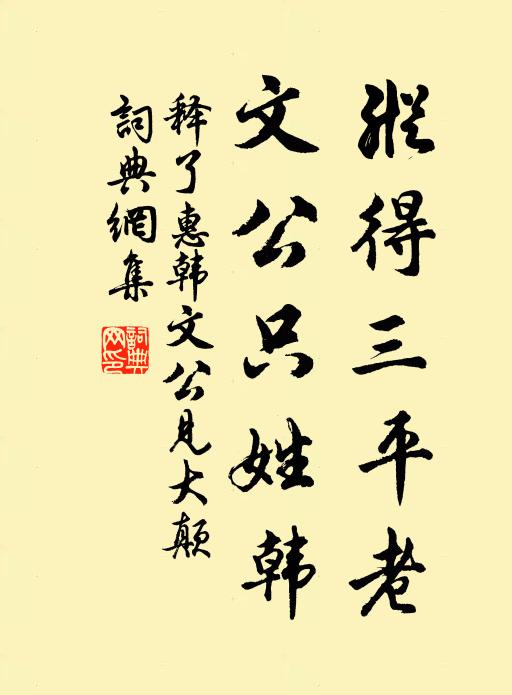 纵得三平老
文公只姓韩
释了惠韩文公见大颠
词典網集
詞典網印